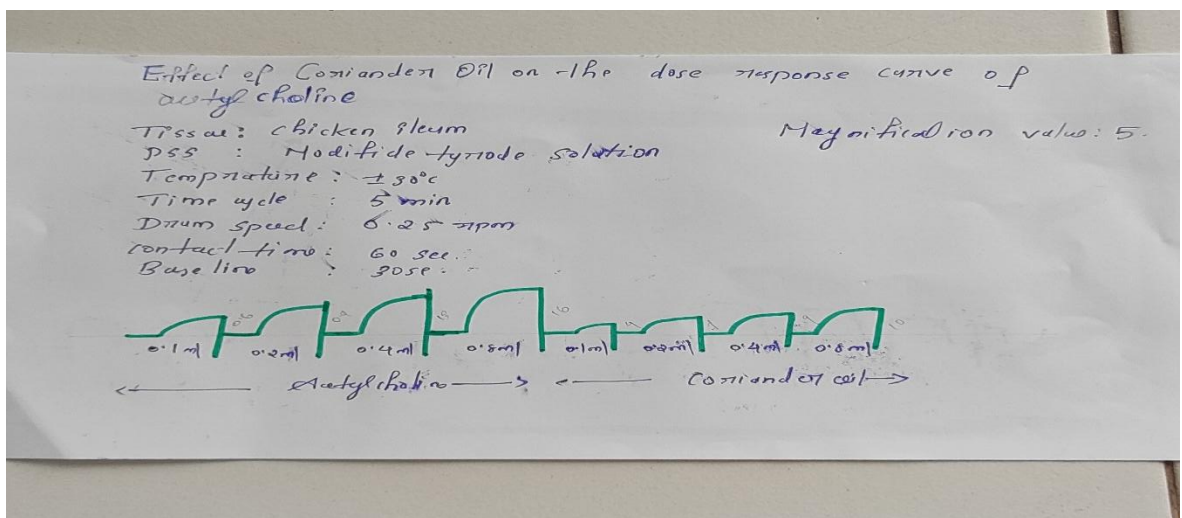 Effect of Coriander Oil on the dose response curve of
acetyl choline
Tissue: chicken ileum
Magnification value: 5.
PSS : Modifide tyrode solution
Temprature: ± 30°c
Time cycle : 5 min
Drum speed: 6.25 rpm
contact time: 60 sec.
Base line : 30se.
0.1ml 0.2ml 0.4ml 0.8ml 0.1ml 0.2ml 0.4ml 0.8ml
Acetylcholine Coriander oil